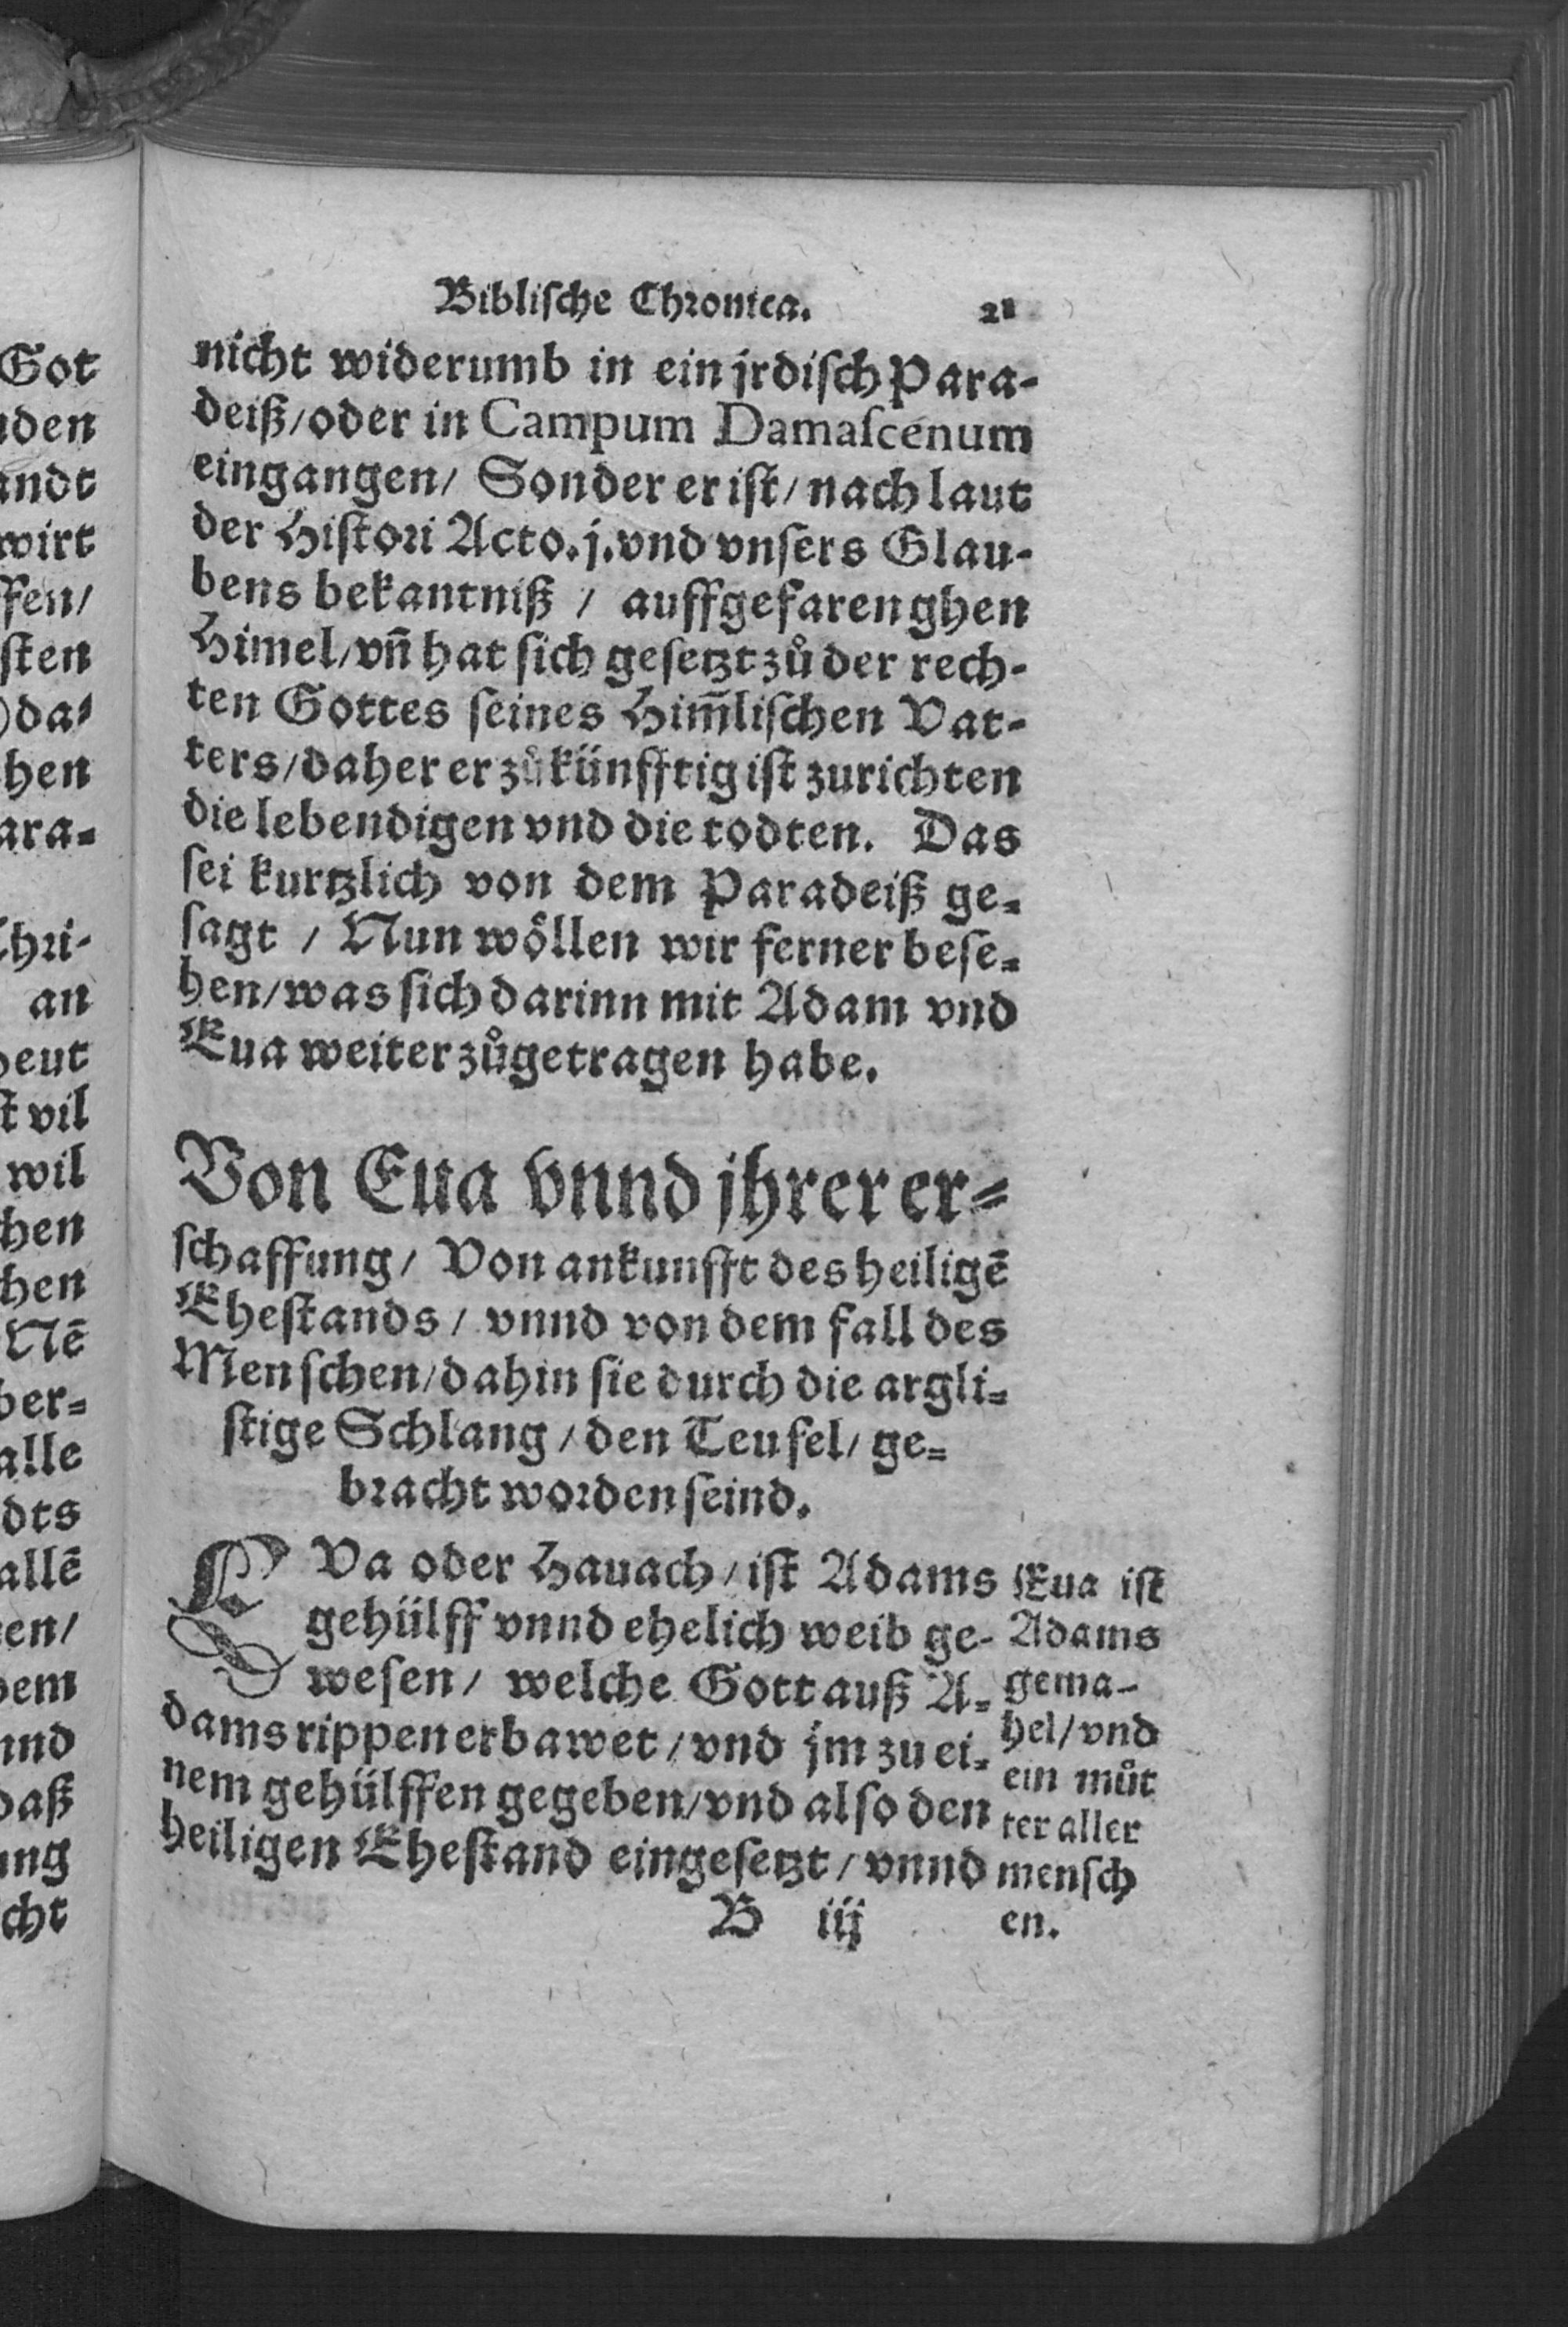 Biblische Chronica. 21
nicht widerumb in ein jrdisch Para-
deiß/oder in Campum Damascenum
eingangen/ Sonder er ist/ nach laut
der Histori Acto. j. vnd vnsers Glau-
bens bekantniß / auffgefaren ghen
Himel/vn̄ hat sich gesetzt zů der rech-
ten Gottes seines Him̄lischen Vat-
ters/daher er zůkünfftig ist zurichten
die lebendigen vnd die todten. Das
sei kurtzlich von dem Paradeiß ge-
sagt / Nun wöllen wir ferner bese-
hen/was sich darinn mit Adam vnd
Eua weiter zůgetragen habe.
Von Eua vnnd jhrer er-
schaffung/ Von ankunfft des heiligē
Ehestands/ vnnd von dem fall des
Menschen/dahin sie durch die argli-
stige Schlang/den Teufel/ ge-
bracht worden seind.
EVa oder Hauach/ist Adams
gehülff vnnd ehelich weib ge-
wesen/ welche Gott auß A-
dams rippen erbawet/vnd jm zu ei-
nem gehülffen gegeben/vnd also den
heiligen Ehestand eingesetzt/vnnd
B iij
Eua ist
Adams
gema-
hel/vnd
ein můt
ter aller
mensch
en.
Got
den
andt
wirt
ffen/
sten
)da-
hen
ara-
Chri-
an
heut
st vil
wil
chen
chen
Nē
ber-
alle
dts
allē
en/
dem
nnd
daß
ung
cht